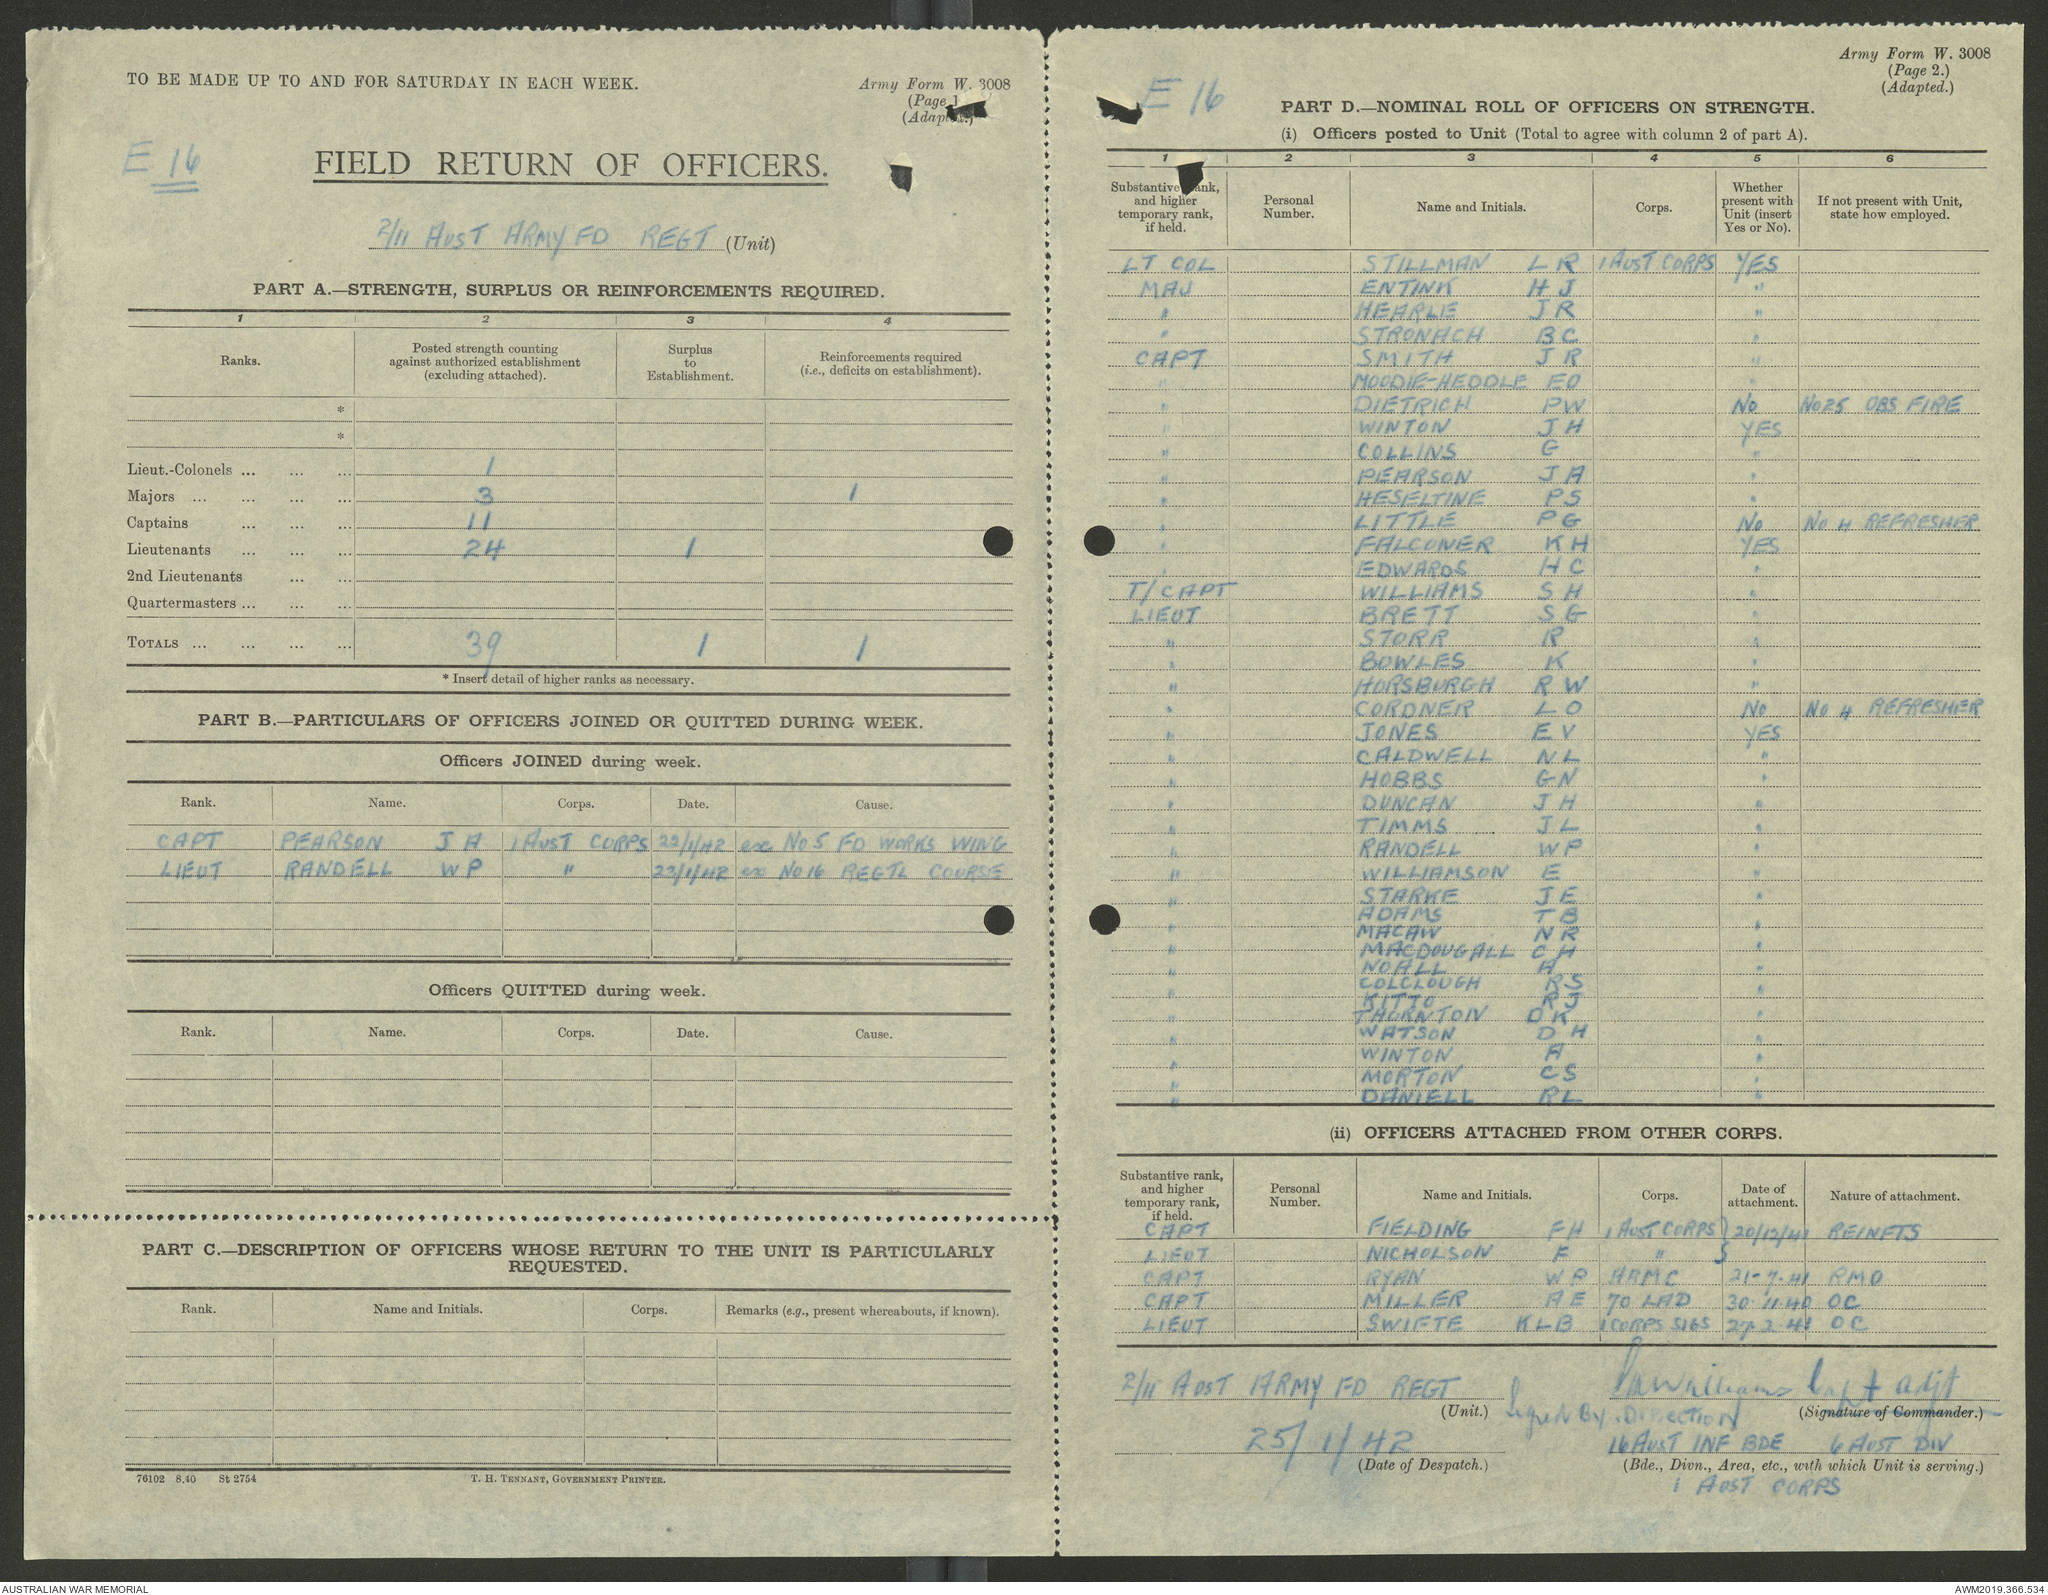 TO BE MADE UP TO AND FOR SATURDAY IN EACH WEEK.
Army Form W. 3008
(Page 1
(Adapted.)
E 16
FIELD RETURN OF OFFICERS.
2/11 AUST ARMY FD REGT (Unit)
PART A.—STRENGTH, SURPLUS OR REINFORCEMENTS REQUIRED.
1 2 3 4
Ranks. Posted strength counting against authorized establishment (excluding attached). Surplus to Establishment. Reinforcements required (i.e., deficits on establishment).
*
*
Lieut.-Colonels ... ... ... 1
Majors ... ... ... ... 3 1
Captains ... ... ... 11
Lieutenants ... ... ... 24 1
2nd Lieutenants ... ...
Quartermasters ... ... ...
TOTALS ... ... ... ... 39 1 1
* Insert detail of higher ranks as necessary.
PART B.—PARTICULARS OF OFFICERS JOINED OR QUITTED DURING WEEK.
Officers JOINED during week.
Rank. Name. Corps. Date. Cause.
CAPT PEARSON J A 1 AUST CORPS 22/1/42 ex No 5 FD WORKS WING
LIEUT RANDELL W P " 23/1/42 ex No 16 REGTL COURSE
Officers QUITTED during week.
Rank. Name. Corps. Date. Cause.
PART C.—DESCRIPTION OF OFFICERS WHOSE RETURN TO THE UNIT IS PARTICULARLY
REQUESTED.
Rank. Name and Initials. Corps. Remarks (e.g., present whereabouts, if known).
76102 8.40 St 2754 T. H. TENNANT, GOVERNMENT PRINTER.
Army Form W. 3008
(Page 2.)
(Adapted.)
E 16
PART D.—NOMINAL ROLL OF OFFICERS ON STRENGTH.
(i) Officers posted to Unit (Total to agree with column 2 of part A).
1 2 3 4 5 6
Substantive rank, and higher temporary rank, if held. Personal Number. Name and Initials. Corps. Whether present with Unit (insert Yes or No). If not present with Unit, state how employed.
LT COL STILLMAN L R 1 AUST CORPS YES
MAJ ENTINK H J "
" HEARLE J R "
" STRONACH B C "
CAPT SMITH J R "
" MOODIE-HEDDLE E O "
" DIETRICH P W No No 25 OBS FIRE
" WINTON J H YES
" COLLINS G "
" PEARSON J A "
" HESELTINE P S "
" LITTLE P G No No 4 REFRESHER
" FALCONER K H YES
" EDWARDS H C "
T/CAPT WILLIAMS S H "
LIEUT BRETT S G "
" STORR R "
" BOWLES K "
" HORSBURGH R W "
" CORDNER L O No No 4 REFRESHER
" JONES E V YES
" CALDWELL N L "
" HOBBS G N "
" DUNCAN J H "
" TIMMS J L "
" RANDELL W P "
" WILLIAMSON E "
" STARKE J E "
" ADAMS T B "
" MACAW N R "
" MACDOUGALL C H "
" NOALL A "
" COLCLOUGH R S "
" KITTO R J "
" THORNTON D K "
" WATSON D H "
" WINTON A "
" MORTON C S "
" DANIELL R L "
(ii) OFFICERS ATTACHED FROM OTHER CORPS.
Substantive rank, and higher temporary rank, if held. Personal Number. Name and Initials. Corps. Date of attachment. Nature of attachment.
CAPT FIELDING F H 1 AUST CORPS } 20/12/41 REINFTS
LIEUT NICHOLSON F " }
CAPT RYAN W P AAMC 21-7-41 RMO
CAPT MILLER A E 70 LAD 30.11.40 OC
LIEUT SWIFTE K L B 1 CORPS SIGS 27.2.41 OC
2/11 AUST ARMY FD REGT Williams Capt adjt
(Unit.) Signed By Direction (Signature of Commander.)
25/1/42 16 AUST INF BDE 6 AUST DIV
(Date of Despatch.) (Bde., Divn., Area, etc., with which Unit is serving.)
1 AUST CORPS
AUSTRALIAN WAR MEMORIAL
AWM2019.366.534